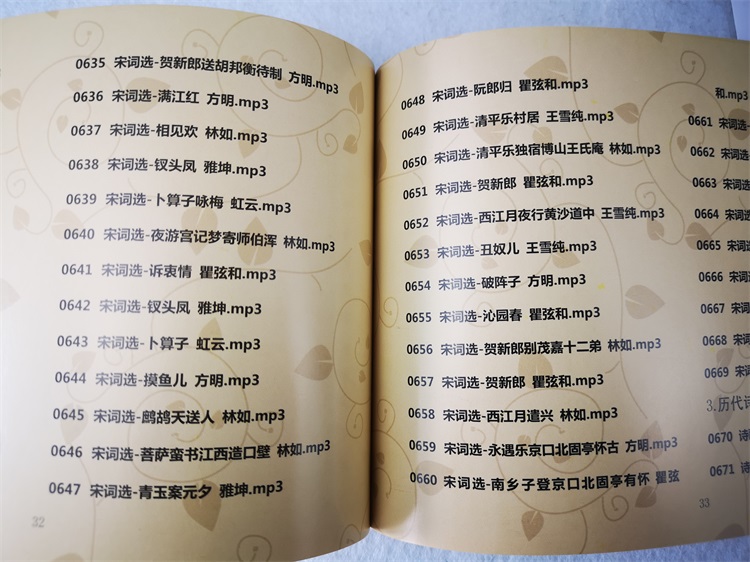 0635 宋词选-贺新郎送胡邦衡待制 方明.mp3
0636 宋词选-满江红 方明.mp3
0637 宋词选-相见欢 林如.mp3
0638 宋词选-钗头凤 雅坤.mp3
0639 宋词选-卜算子咏梅 虹云.mp3
0640 宋词选-夜游宫记梦寄师伯浑 林如.mp3
0641 宋词选-诉衷情 瞿弦和.mp3
0642 宋词选-钗头凤 雅坤.mp3
0643 宋词选-卜算子 虹云.mp3
0644 宋词选-摸鱼儿 方明.mp3
0645 宋词选-鹧鸪天送人 林如.mp3
0646 宋词选-菩萨蛮书江西造口壁 林如.mp3
0647 宋词选-青玉案元夕 雅坤.mp3
32
0648 宋词选-阮郎归 瞿弦和.mp3
0649 宋词选-清平乐村居 王雪纯.mp3
0650 宋词选-清平乐独宿博山王氏庵 林如.mp3
0651 宋词选-贺新郎 瞿弦和.mp3
0652 宋词选-西江月夜行黄沙道中 王雪纯.mp3
0653 宋词选-丑奴儿 王雪纯.mp3
0654 宋词选-破阵子 方明.mp3
0655 宋词选-沁园春 瞿弦和.mp3
0656 宋词选-贺新郎别茂嘉十二弟 林如.mp3
0657 宋词选-贺新郎 瞿弦和.mp3
0658 宋词选-西江月遣兴 林如.mp3
0659 宋词选-永遇乐京口北固亭怀古 方明.mp3
0660 宋词选-南乡子登京口北固亭有怀 瞿弦
和.mp3
0661 宋词
0662 宋词
0663 宋词
0664 宋词
0665 宋词
0666 宋词
0667 宋词
0668 宋词
0669 宋词
3.历代诗
0670 诗
0671 诗
33